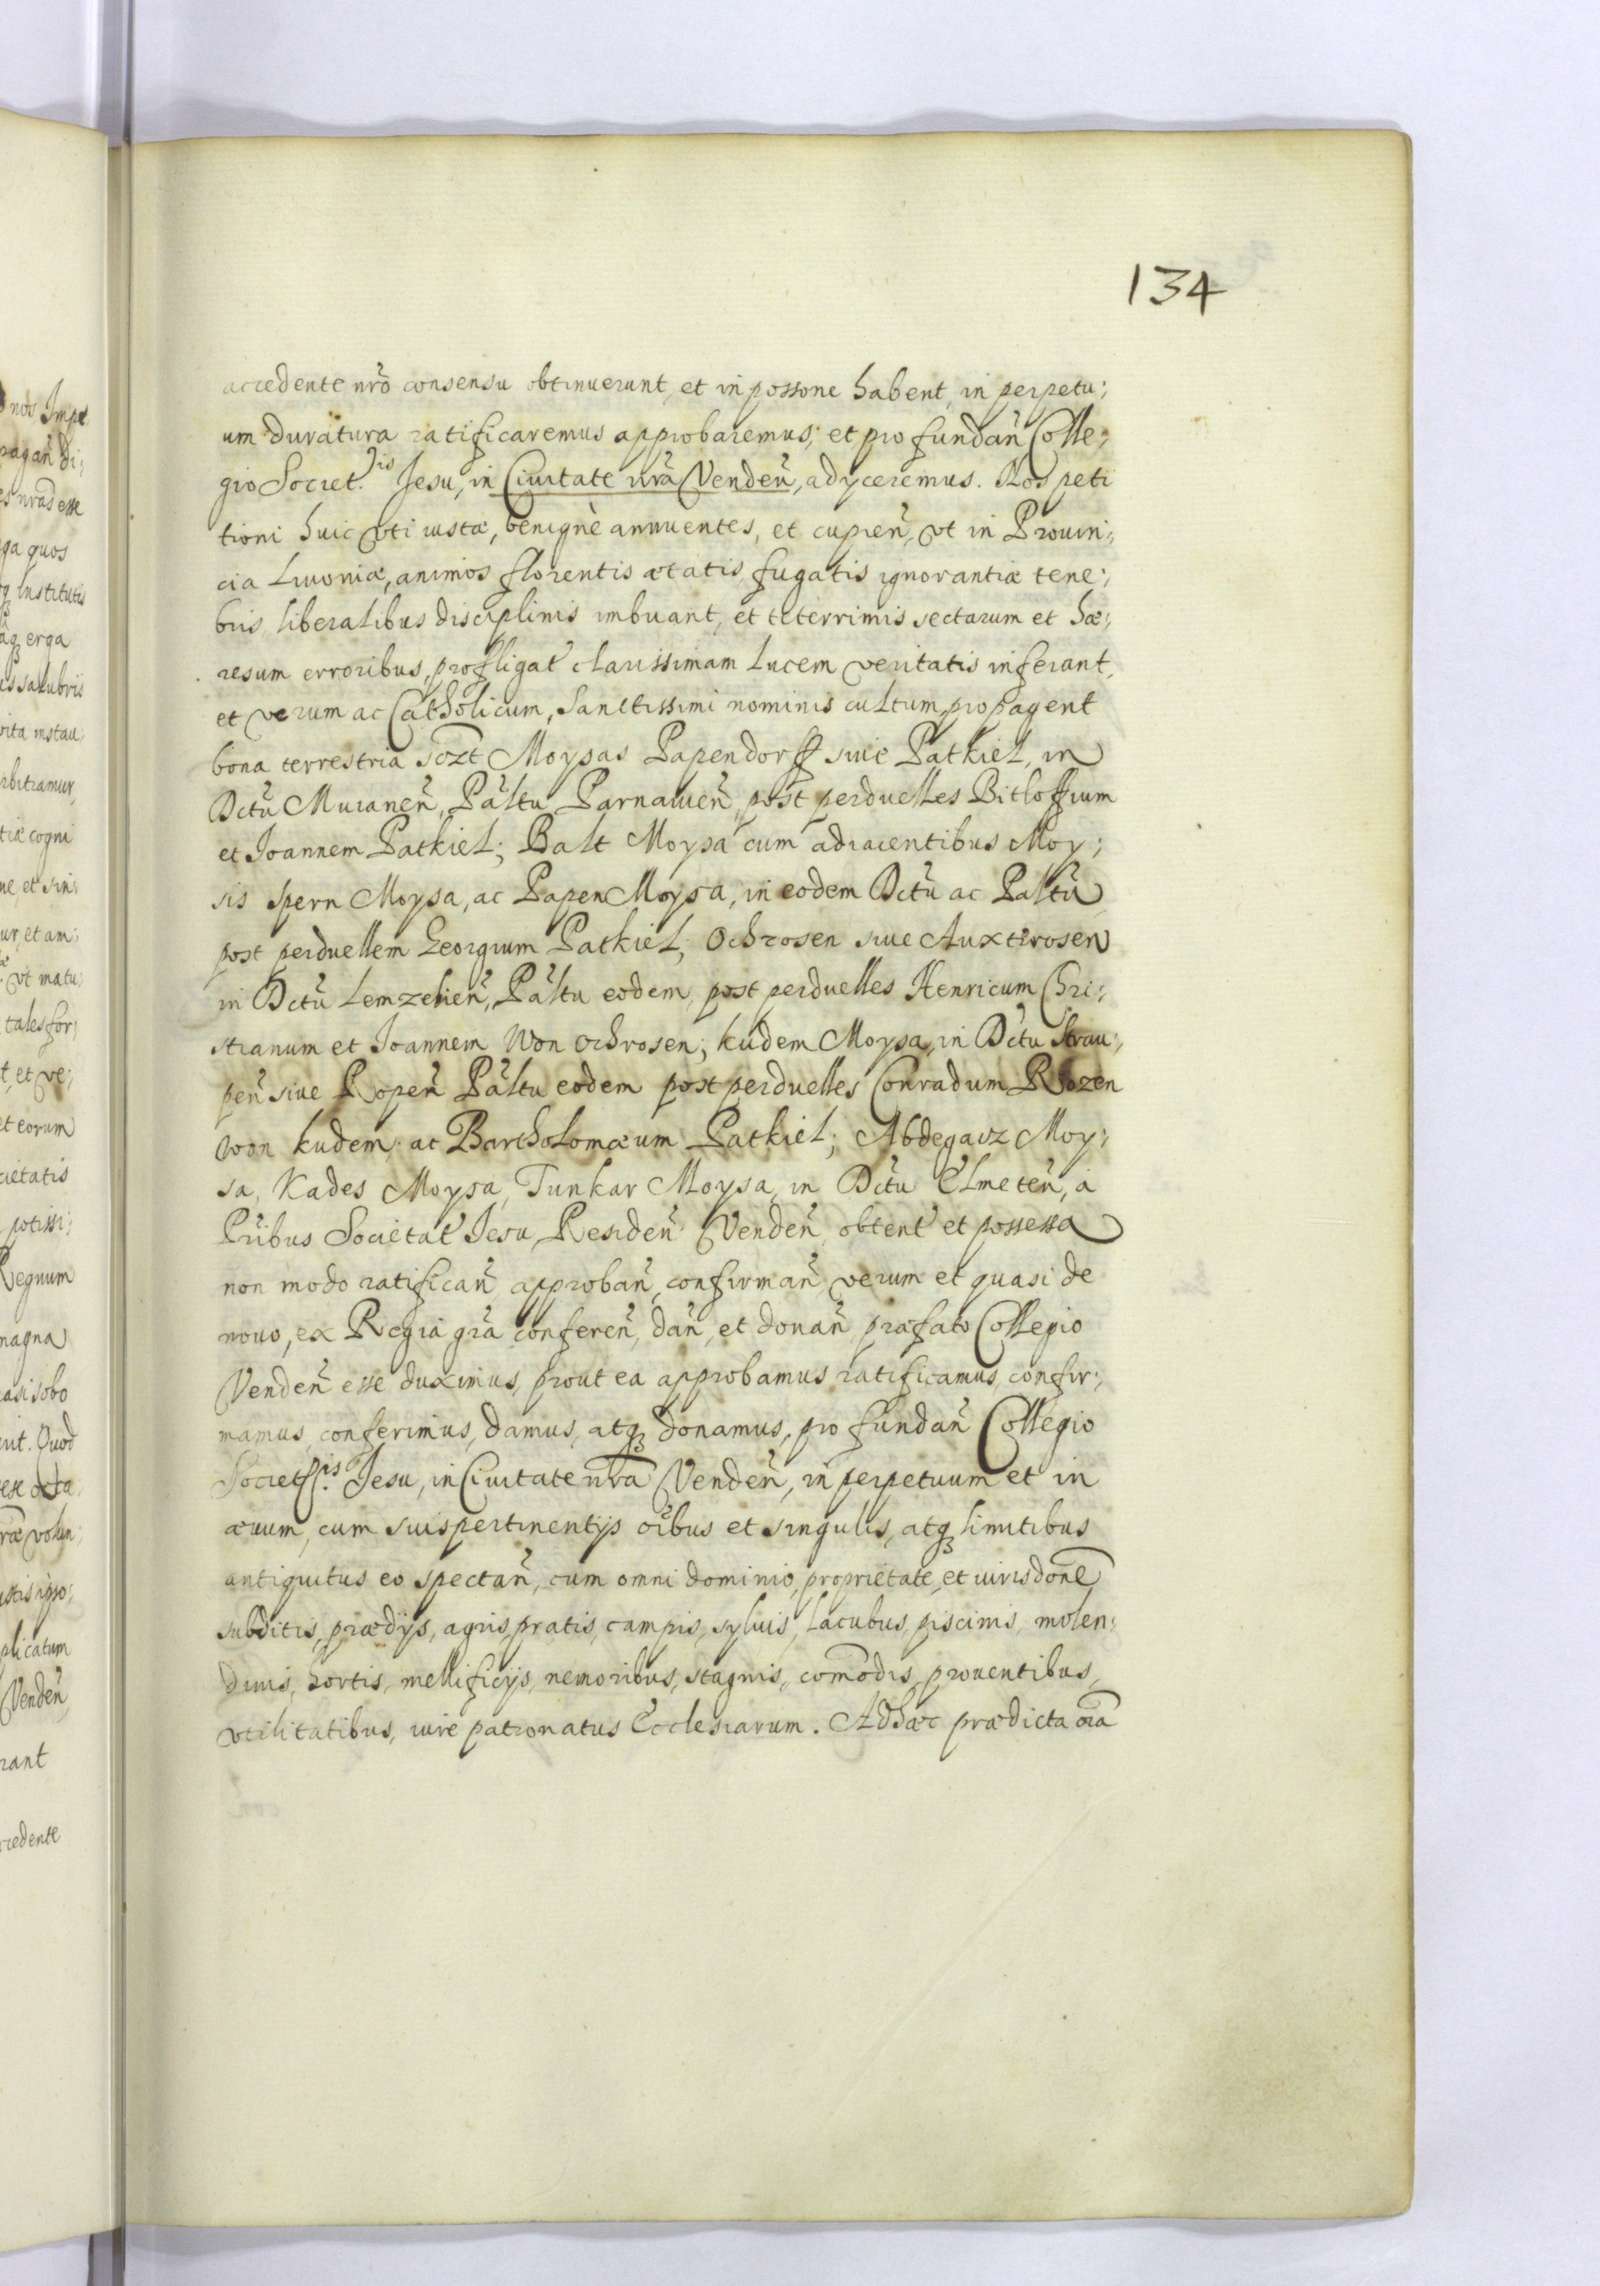 134
accedente nr̃o consensu obtinuerunt, et in possone habent, in perpetu:,
um duratura ratificaremus approbaremus, et pro fundañ Colle:,
gio Societ.tis Jesu, in Ciuitate nr̃a Vendeñ, adyceremus. Nos peti
tioni huic vti iustæ, benignè annuentes, et cupieñ, vt in Prouin:,
cia Liuoniæ, animos florentis ætatis, fugatis ignorantiæ tene:,
bris liberalibus disciplinis imbuant, et teterrimis sectarum et hæ:,
resum erroribus, profligat̃ clarissimam lucem veritatis inferant,
et verum ac Catholicum, Sanctissimi nominis cultum, propagent
bona terrestria Moysas Papendorff siue Patkiel, in
Dctũ Muraneñ, Pãltu Parnauieñ, post perduelles Bitloffium
et Joannem Patkiel; Balt Moysa cum adiacentibus Moy:,
sis Spern Moysa, ac Papen Moysa, in eodem Dctũ ac Paltũ
post perduellem Georgium Patkiel, Ochrosen siue Auxterosen
in Dctũ Lemzelieñ, Pãltu eodem, post perduelles Henricum Chri:,
stianum et Joannem Won Ochrosen; kudem Moysa, in Dctũ Strau:,
peñ siue Ropeñ Pãltu eodem post perduelles Conradum Rozen
Won kudem, ac Bartholomæum Patkiel; Abdegacz Moy:,
sa, Kades Moysa, Tunkar Moysa, in Dctũ Elmeteñ, a
Pr̃ibus Societat̃ Jesu Resideñ Vendeñ, obtent̃ et possessa
non modo ratificañ approbañ, confirmañ, verum et quasi de
nouo, ex Regia gr̃a confereñ, dañ, et donañ præfato Collegio
Vendeñ esse duximus, prout ea approbamus ratificamus, confir:,
mamus, conferimus, damus, atq3 donamus, pro fundañ Collegio
Societ.tis Jesu, in Ciuitate nr̃a Vendeñ, in perpetuum et in
æuum, cum suis pertinentijs oĩbus et singulis, atq3 limitibus
antiquitus eo spectañ, cum omni dominio, proprietate, et iurisdoñe
subditis, prædijs, agris, pratis, campis, syluis, lacubus, piscinis, molen:,
dinis, hortis, mellificijs, nemoribus, stagnis, com̃odis, prouentibus,
vtilitatibus, iure patronatus Ecclesiarum. Adhæc prædicta oĩa